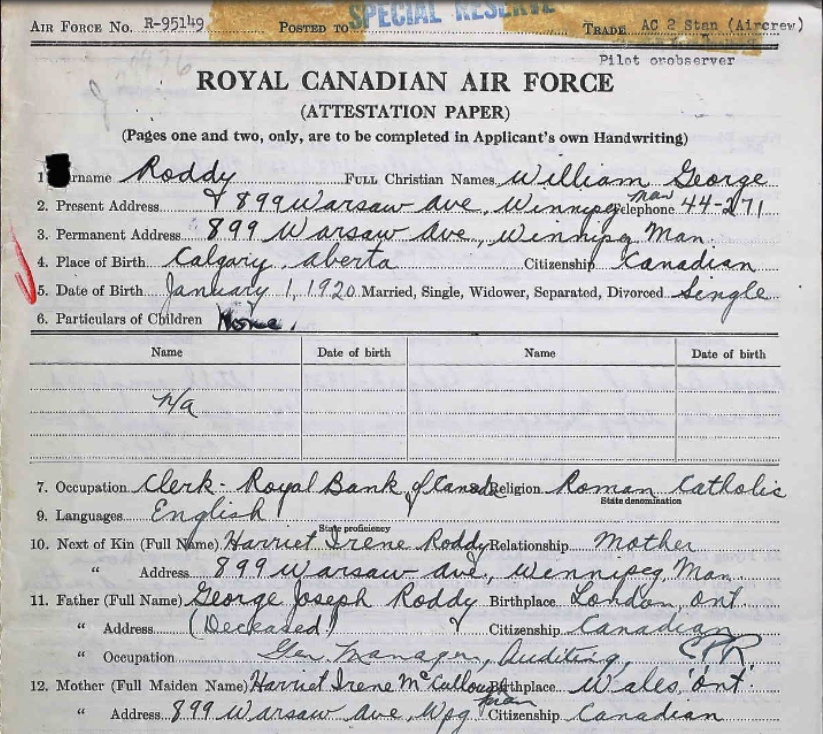 AIR FORCE No. R-95149 POSTED TO SPECIAL RESERVE TRADE AC 2 Stan (Aircrew)
Pilot orobserver
ROYAL CANADIAN AIR FORCE
(ATTESTATION PAPER)
(Pages one and two, only, are to be completed in Applicant's own Handwriting)
1 rname Roddy FULL Christian Names William George
2. Present Address 899 Warsaw Ave, Winnipeg Man Telephone 44-271
3. Permanent Address 899 Warsaw Ave, Winnipeg Man.
4. Place of Birth Calgary, Aberta Citizenship Canadian
5. Date of Birth January 1, 1920 Married, Single, Widower, Separated, Divorced Single
6. Particulars of Children None.
Name Date of birth Name Date of birth
N/a
7. Occupation Clerk - Royal Bank of Canada Religion Roman Catholic
State denomination
9. Languages English
State proficiency
10. Next of Kin (Full Name) Harriet Irene Roddy Relationship Mother
" Address 899 Warsaw Ave., Winnipeg, Man.
11. Father (Full Name) George Joseph Roddy Birthplace London, Ont.
" Address (Deceased) Citizenship Canadian
" Occupation Gen. Manager, Auditing, CPR
12. Mother (Full Maiden Name) Harriet Irene McCullough Birthplace Wales, Ont.
" Address 899 Warsaw Ave, Wpg Man Citizenship Canadian